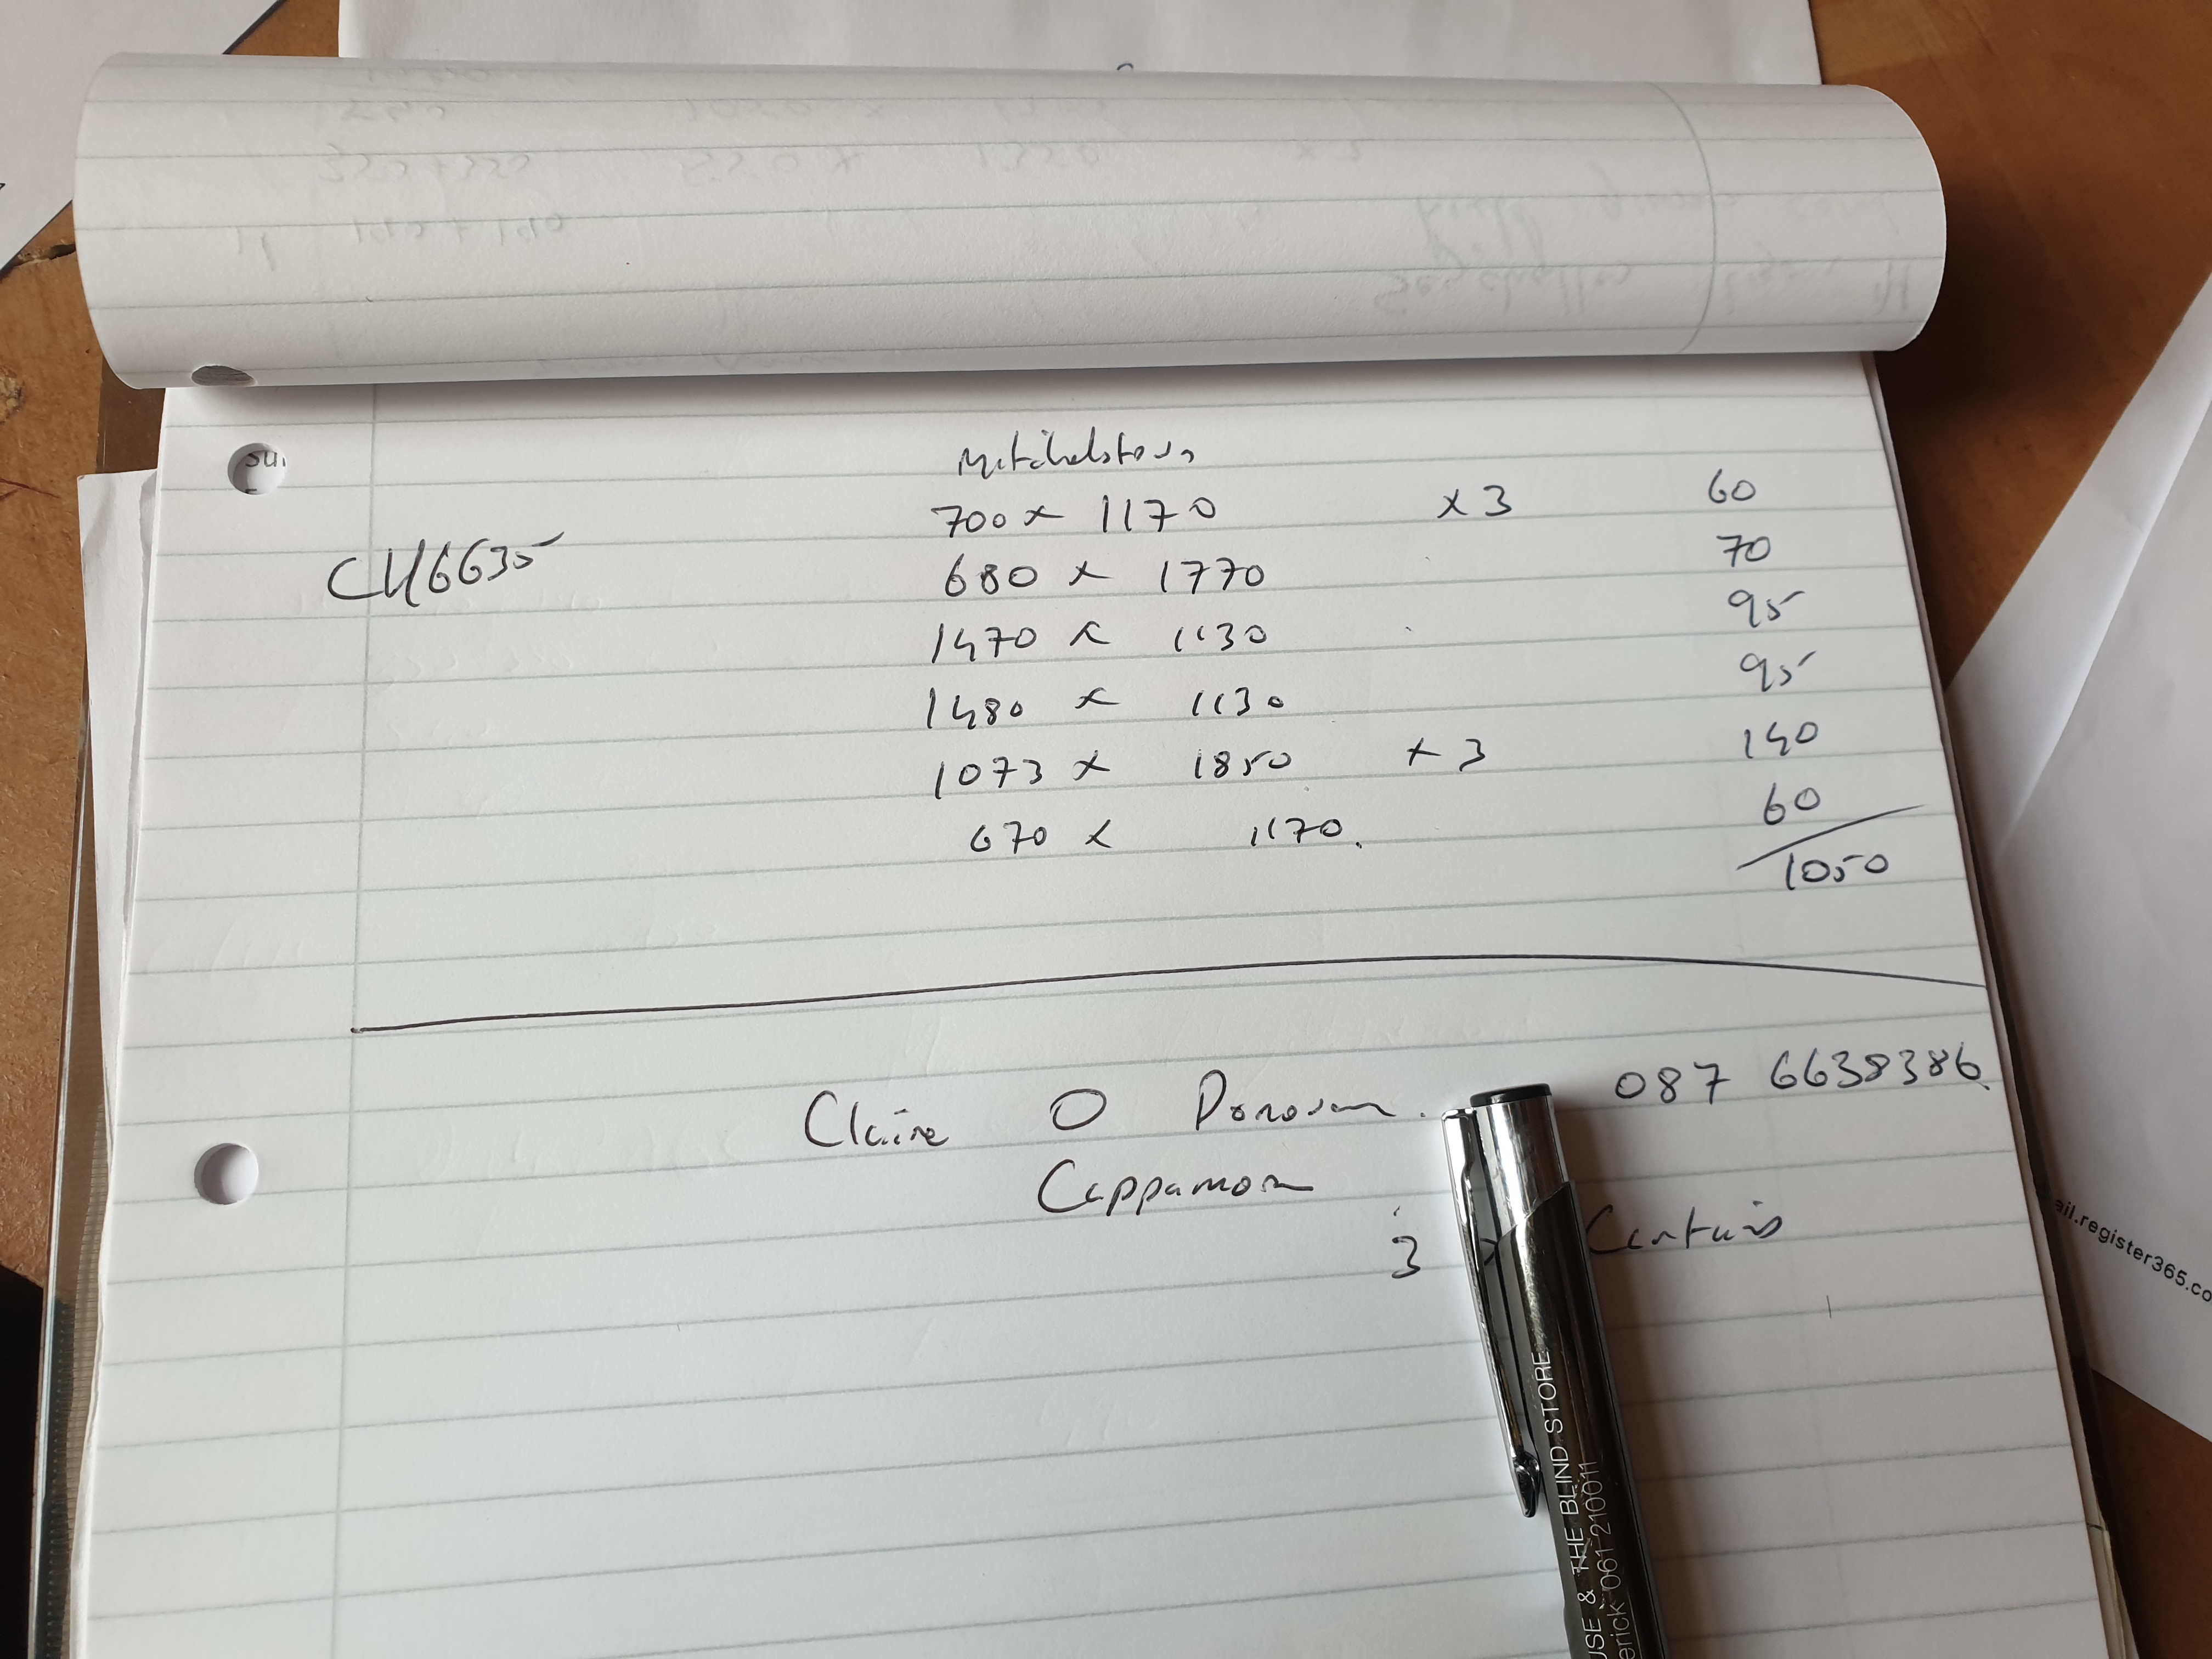 su.
Mitchelstown
700 x 1170 x 3 60
CH6635
680 x 1770 70
1470 x 1130 95
1480 x 1130 95
1073 x 1850 x 3 140
670 x 1170. 60
1050
Claire O Donovan. 087 6638386.
Cappamore
3 Curtains
USE & THE BLIND STORE
erick 061 210011
ail.register365.co